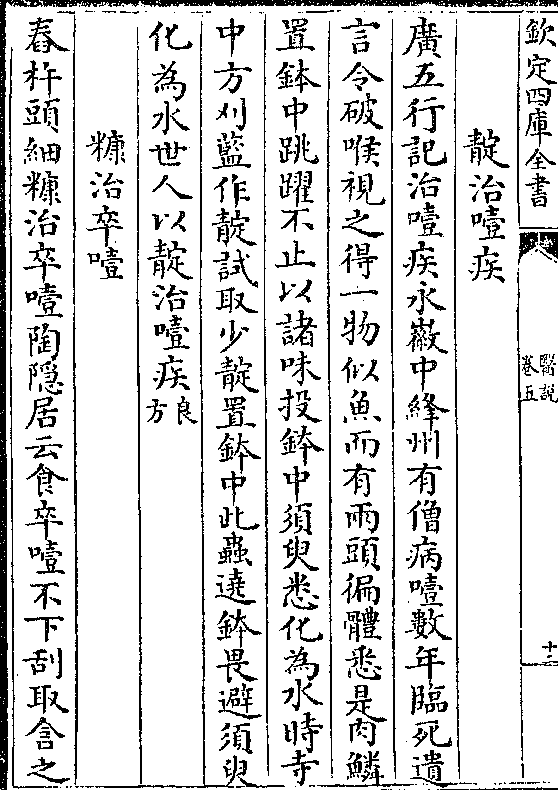 欽定四庫全書
醫說
卷五
十二
靛治噎疾
廣五行記治噎疾永徽中絳州有僧病噎數年臨死遺
言令破喉視之得一物似魚而有兩頭徧體悉是肉鱗
置鉢中跳躍不止以諸味投鉢中須臾悉化為水時寺
中方刈藍作靛試取少靛置鉢中此蟲遶鉢畏避須臾
化為水世人以靛治噎疾良方
糠治卒噎
舂杵頭細糠治卒噎陶隠居云食卒噎不下刮取含之